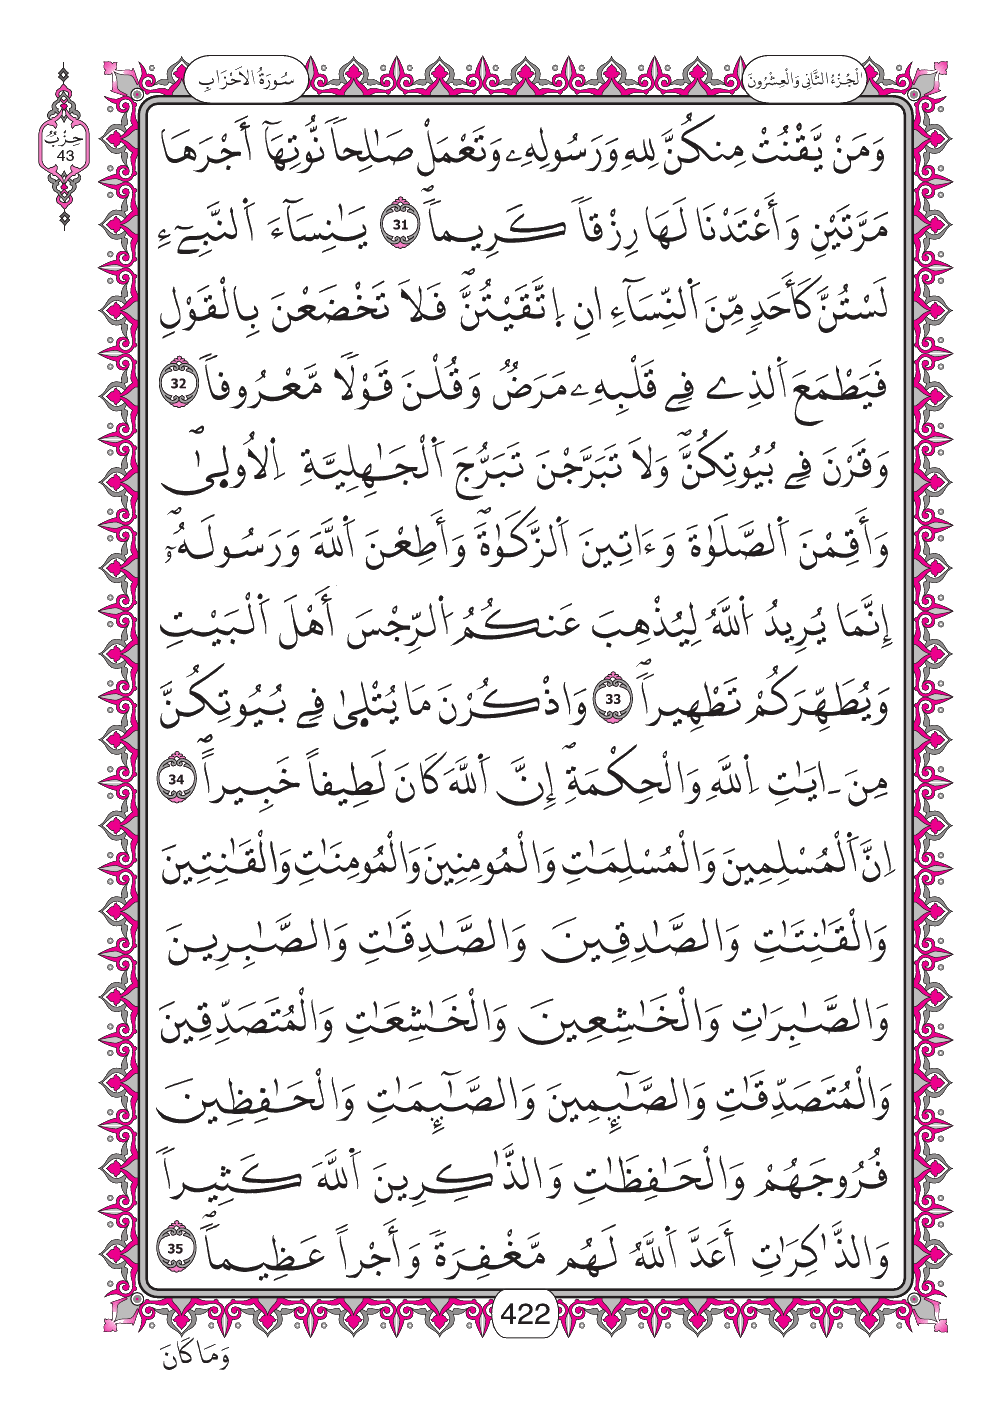 الْجُزْءُ الثَّانِي وَالْعِشْرُونَ
سُورَةُ الأَحْزَابِ
حِزْبٌ
43
وَمَنْ يَّقْنُتْ مِنكُنَّ لِلهِ وَرَسُولِهِۦ وَتَعْمَلْ صَٰلِحاٗ نُّوتِهَآ أَجْرَهَا
مَرَّتَيْنِ وَأَعْتَدْنَا لَهَا رِزْقاٗ كَرِيماٗۖ 31 يَٰنِسَآءَ اَ۬لنَّبِےٓءِ
لَسْتُنَّ كَأَحَدٖ مِّنَ اَ۬لنِّسَآءِ انِ إِ۪تَّقَيْتُنَّۖ فَلَا تَخْضَعْنَ بِالْقَوْلِ
فَيَطْمَعَ اَ۬لذِے فِے قَلْبِهِۦ مَرَضٞ وَقُلْنَ قَوْلاٗ مَّعْرُوفاٗۖ 32
وَقَرْنَ فِے بُيُوتِكُنَّۖ وَلَا تَبَرَّجْنَ تَبَرُّجَ اَ۬لْجَٰهِلِيَّةِ اِ۬لُاول۪يٰۖ
وَأَقِمْنَ اَ۬لصَّلَوٰةَ وَءَاتِينَ اَ۬لزَّكَوٰةَۖ وَأَطِعْنَ اَ۬للَّهَ وَرَسُولَهُۥٓۖ
إِنَّمَا يُرِيدُ اُ۬للَّهُ لِيُذْهِبَ عَنكُمُ اُ۬لرِّجْسَ أَهْلَ اَ۬لْبَيْتِ
وَيُطَهِّرَكُمْ تَطْهِيراٗۖ 33 وَاذْكُرْنَ مَا يُتْل۪يٰ فِے بُيُوتِكُنَّ
مِنَ ـ ايَٰتِ اِ۬للَّهِ وَالْحِكْمَةِۖ إِنَّ اَ۬للَّهَ كَانَ لَطِيفاً خَبِيراًۖ 34
اِنَّ اَ۬لْمُسْلِمِينَ وَالْمُسْلِمَٰتِ وَالْمُومِنِينَ وَالْمُومِنَٰتِ وَالْقَٰنِتِينَ
وَالْقَٰنِتَٰتِ وَالصَّٰدِقِينَ وَالصَّٰدِقَٰتِ وَالصَّٰبِرِينَ
وَالصَّٰبِرَٰتِ وَالْخَٰشِعِينَ وَالْخَٰشِعَٰتِ وَالْمُتَصَدِّقِينَ
وَالْمُتَصَدِّقَٰتِ وَالصَّٰٓئِمِينَ وَالصَّٰٓئِمَٰتِ وَالْحَٰفِظِينَ
فُرُوجَهُمْ وَالْحَٰفِظَٰتِ وَالذَّٰكِرِينَ اَ۬للَّهَ كَثِيراٗ
وَالذَّٰكِرَٰتِ أَعَدَّ اَ۬للَّهُ لَهُم مَّغْفِرَةٗ وَأَجْراً عَظِيماٗۖ 35
422
وَمَا كَانَ